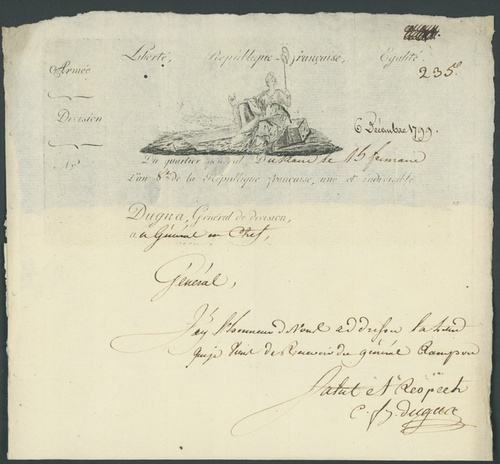 Liberté, République Française, Égalité.
235.
Armée
Division
6 Décembre 1799.
Du quartier général du Kaire le 15 frimaire
L'an 8.e de la République française, une et indivisible
Dugua, Général de division,
au Général en Chef,
Général,
J'ay l'honneur de vous adresser la lettre
que je viens de Recevoir du général Rampon
Salut et Respect
C. f. Dugua